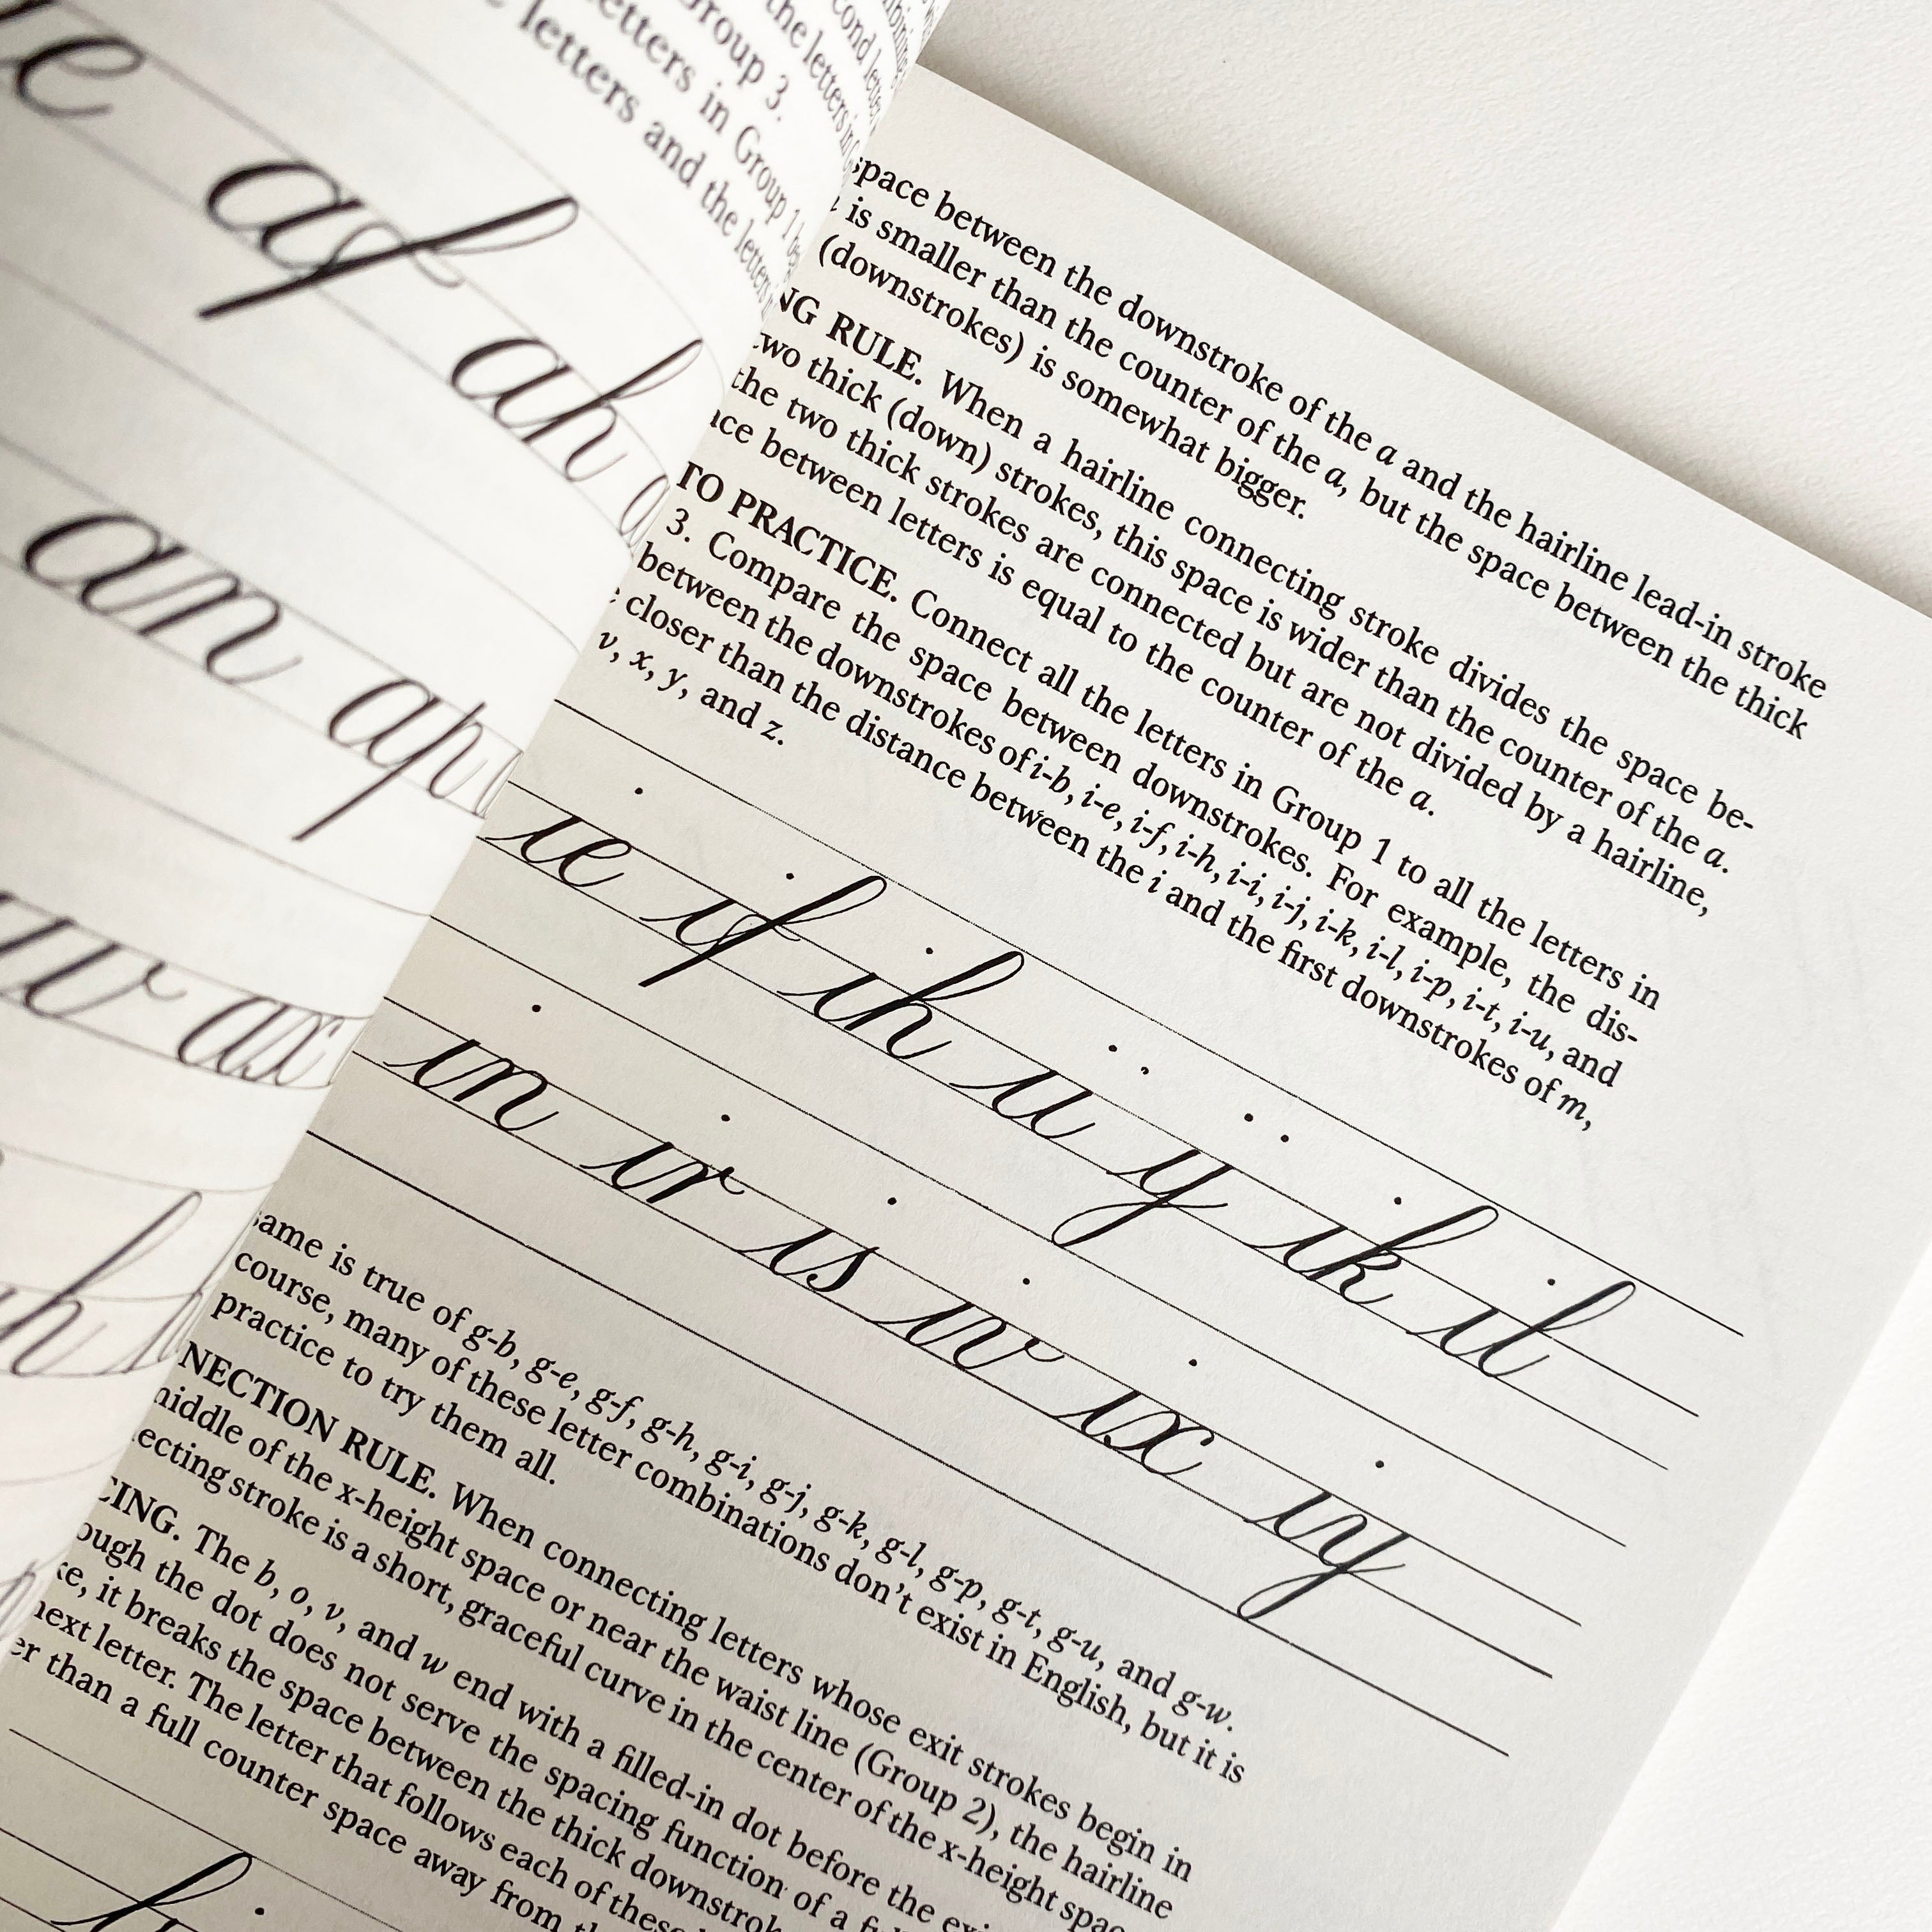 e
af ah
an ap
w ax
h
Group 3.
letters in Group 1
letters and the letters
the letters in
space between the downstroke of the a and the hairline lead-in stroke
is smaller than the counter of the a, but the space between the thick
(downstrokes) is somewhat bigger.
NG RULE. When a hairline connecting stroke divides the space be-
two thick (down) strokes, this space is wider than the counter of the a.
the two thick strokes are connected but are not divided by a hairline,
between letters is equal to the counter of the a.
TO PRACTICE. Connect all the letters in Group 1 to all the letters in
3. Compare the space between downstrokes. For example, the dis-
between the downstrokes of i-b, i-e, i-f, i-h, i-i, i-j, i-k, i-l, i-p, i-t, i-u, and
closer than the distance between the i and the first downstrokes of m,
v, x, y, and z.
ie if ih ii ij ik il
in ir is iv ix iy
same is true of g-b, g-e, g-f, g-h, g-i, g-j, g-k, g-l, g-p, g-t, g-u, and g-w.
course, many of these letter combinations don't exist in English, but it is
practice to try them all.
NECTION RULE. When connecting letters whose exit strokes begin in
middle of the x-height space or near the waist line (Group 2), the hairline
ecting stroke is a short, graceful curve in the center of the x-height space
CING. The b, o, v, and w end with a filled-in dot before the
ough the dot does not serve the spacing function of a
it breaks the space between the thick downstrok
next letter. The letter that follows each of these
er than a full counter space away from